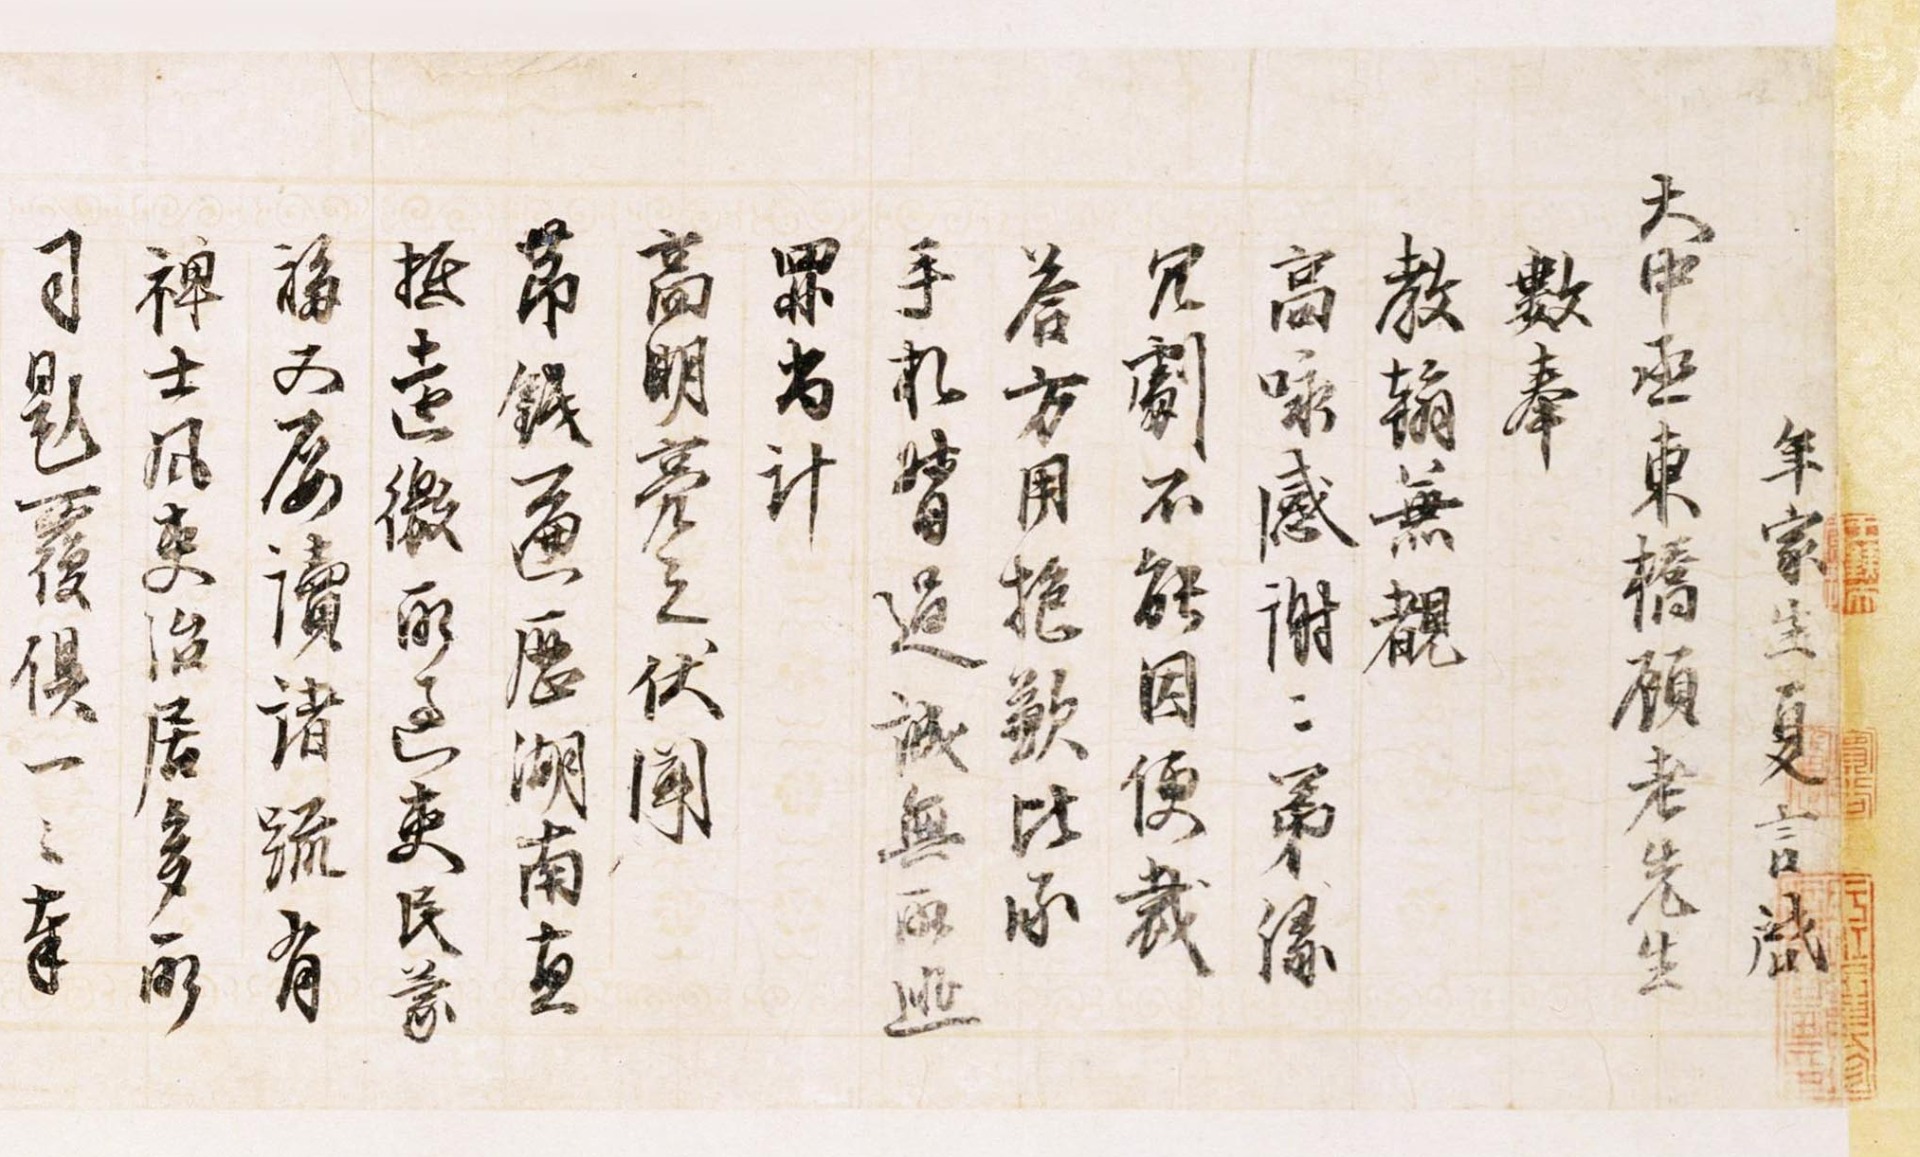 年家生夏言啟
大中丞東橋顧老先生
數奉
教翰兼覩
高咏感謝感謝第緣
冗劇不能因便裁
答方用抱歉比承
手札皆過誠無所逃
罪尚計
高明亮之伏聞
節鉞遍歷湖南直
抵遠徼所過吏民蒙
福又屢讀諸疏有
裨士風吏治居多所
司題覆俱一一奉